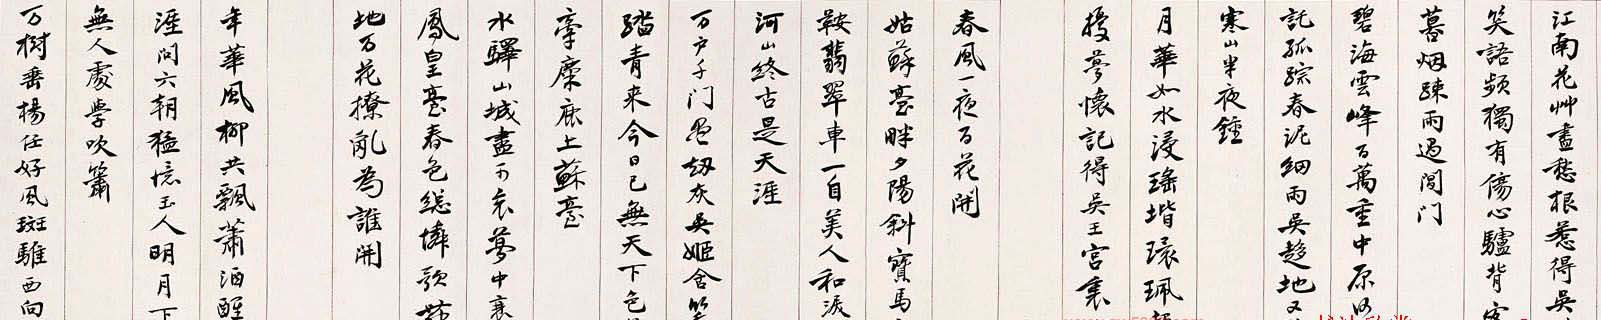 江南花艸盡愁根惹得吳
笑語頻獨有傷心驢背客
暮烟疎雨過閶门
碧海雲峰百萬重中原何
託孤蹤春泥細雨吳趨地又
寒山半夜鍾
月華如水浸瑤堦環珮
擾夢懷記得吳王宮裏
春風一夜百花開
姑蘇臺畔夕陽斜寶馬
鞍翡翠車一自美人和淚
河山終古是天涯
万户千门尽劫灰吳姬含笑
踏青来今日已無天下色
牽麋鹿上蘇臺
水驛山城盡可哀夢中衰
鳳皇臺春色總憐歌舞
地万花撩亂為誰開
年華風柳共飄蕭酒醒
涯问六朝猛憶玉人明月下
無人處學吹簫
万樹垂楊任好風斑騅西向